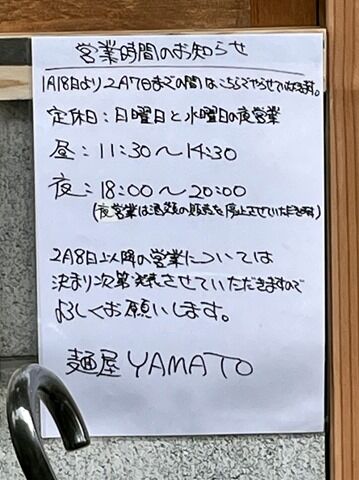 営業時間のお知らせ
1月18日より2月7日までの間はこちらでやらせていただきます。
定休日：日曜日と水曜日の夜営業
昼：11:30～14:30
夜：18:00～20:00
(夜営業は酒類の販売を停止させていただきます)
2月8日以降の営業については
決まり次第発表させていただきますので
よろしくお願いします。
麺屋 YAMATO